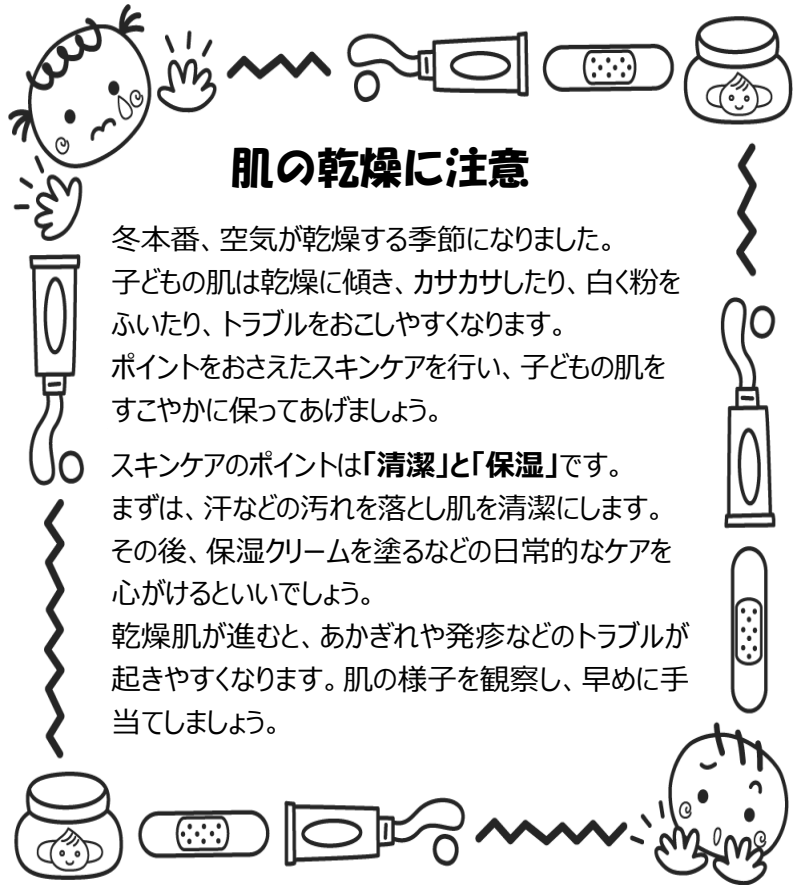 肌の乾燥に注意
冬本番、空気が乾燥する季節になりました。
子どもの肌は乾燥に傾き、カサカサしたり、白く粉を
ふいたり、トラブルをおこしやすくなります。
ポイントをおさえたスキンケアを行い、子どもの肌を
すこやかに保ってあげましょう。
スキンケアのポイントは「清潔」と「保湿」です。
まずは、汗などの汚れを落とし肌を清潔にします。
その後、保湿クリームを塗るなどの日常的なケアを
心がけるといいでしょう。
乾燥肌が進むと、あかぎれや発疹などのトラブルが
起きやすくなります。肌の様子を観察し、早めに手
当てしましょう。